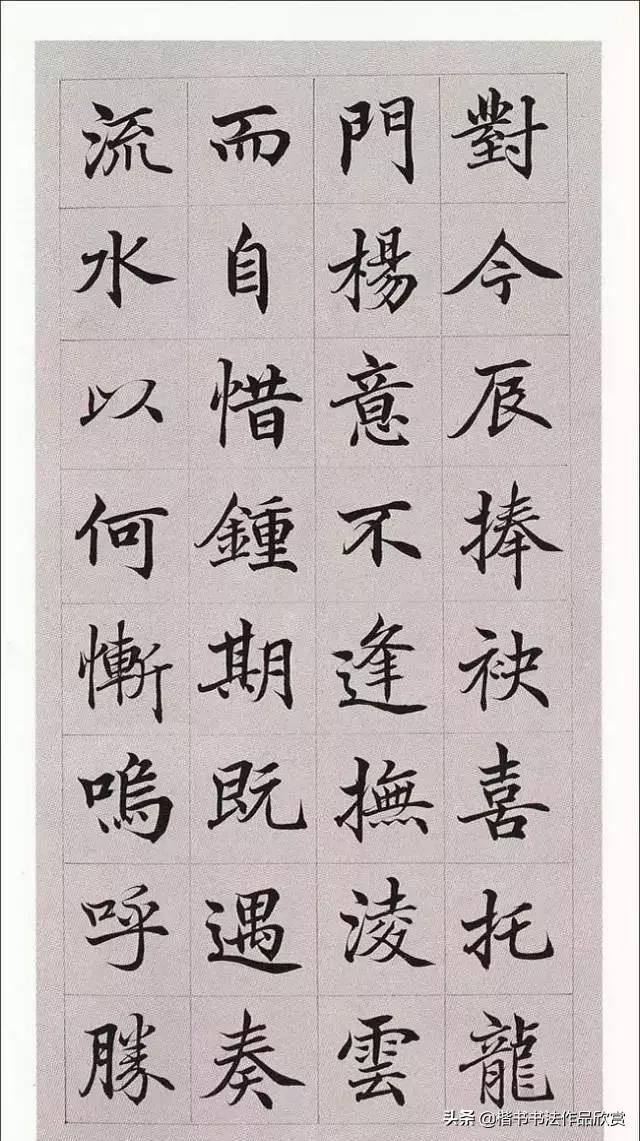 對今辰捧袂喜托龍
門楊意不逢撫淩雲
而自惜鍾期既遇奏
流水以何慚嗚呼勝
头条 @楷书书法作品欣赏